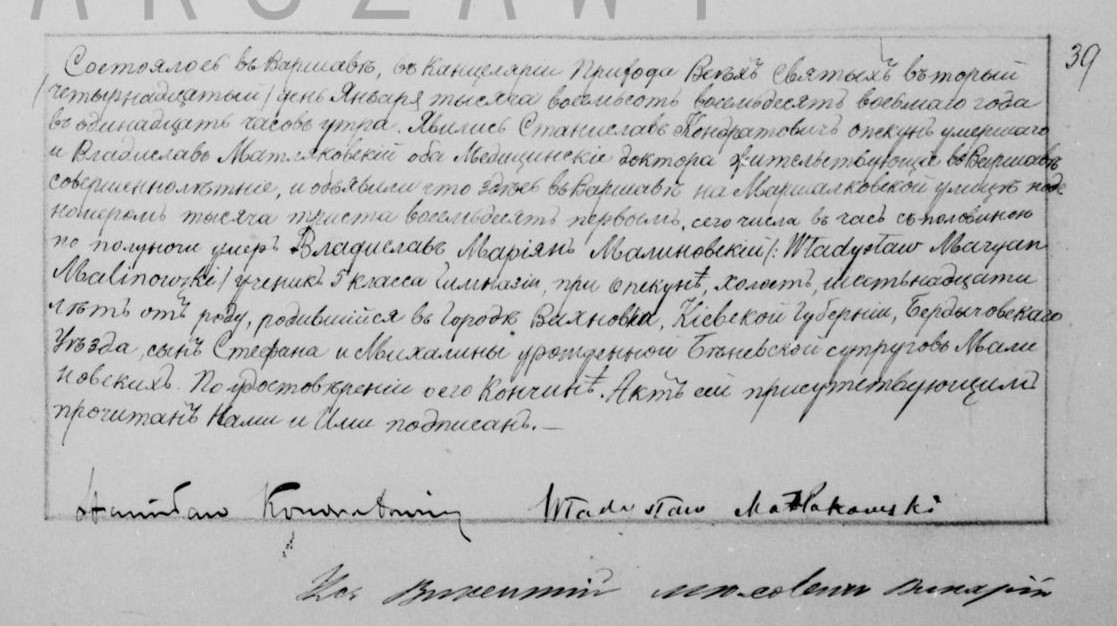 ARSZAWY
39
Состоялось въ Варшавѣ, въ Канцеляріи Прихода Всѣхъ Святыхъ въторый
/четырнадцатый/ день Января тысяча восемьсотъ восемьдесятъ восьмаго года
въ одинадцать часовъ утра. Явились Станиславъ Кондратовичъ опекунъ умершаго
и Владиславъ Матляковскій оба Медицинскіе доктора жительствующіе въ Варшавѣ
совершеннолѣтніе, и объявили что здѣсь въ Варшавѣ на Маршалковской улицѣ подъ
номеромъ тысяча триста восемьдесятъ первомъ, сего числа въ часъ съ половиною
по полуночи умеръ Владиславъ Маріянъ Малиновскій /: Władysław Maryan
Malinowski / ученикъ 5 класса Гимназіи, при опекунѣ, холостъ, шестьнадцати
лѣтъ отъ роду, родившійся въ городѣ Вахновка, Кіевской Губерніи, Бердычовскаго
Уѣзда, сынъ Стефана и Михалины урожденной супруговъ Мали
новскихъ. По удостовѣреніи о его Кончинѣ. Актъ сей присутствующимъ
прочитанъ Нами и Ими подписанъ. —
Stanisław Kondratowicz Władysław Matlakowski
Кс. Викентій Викарій